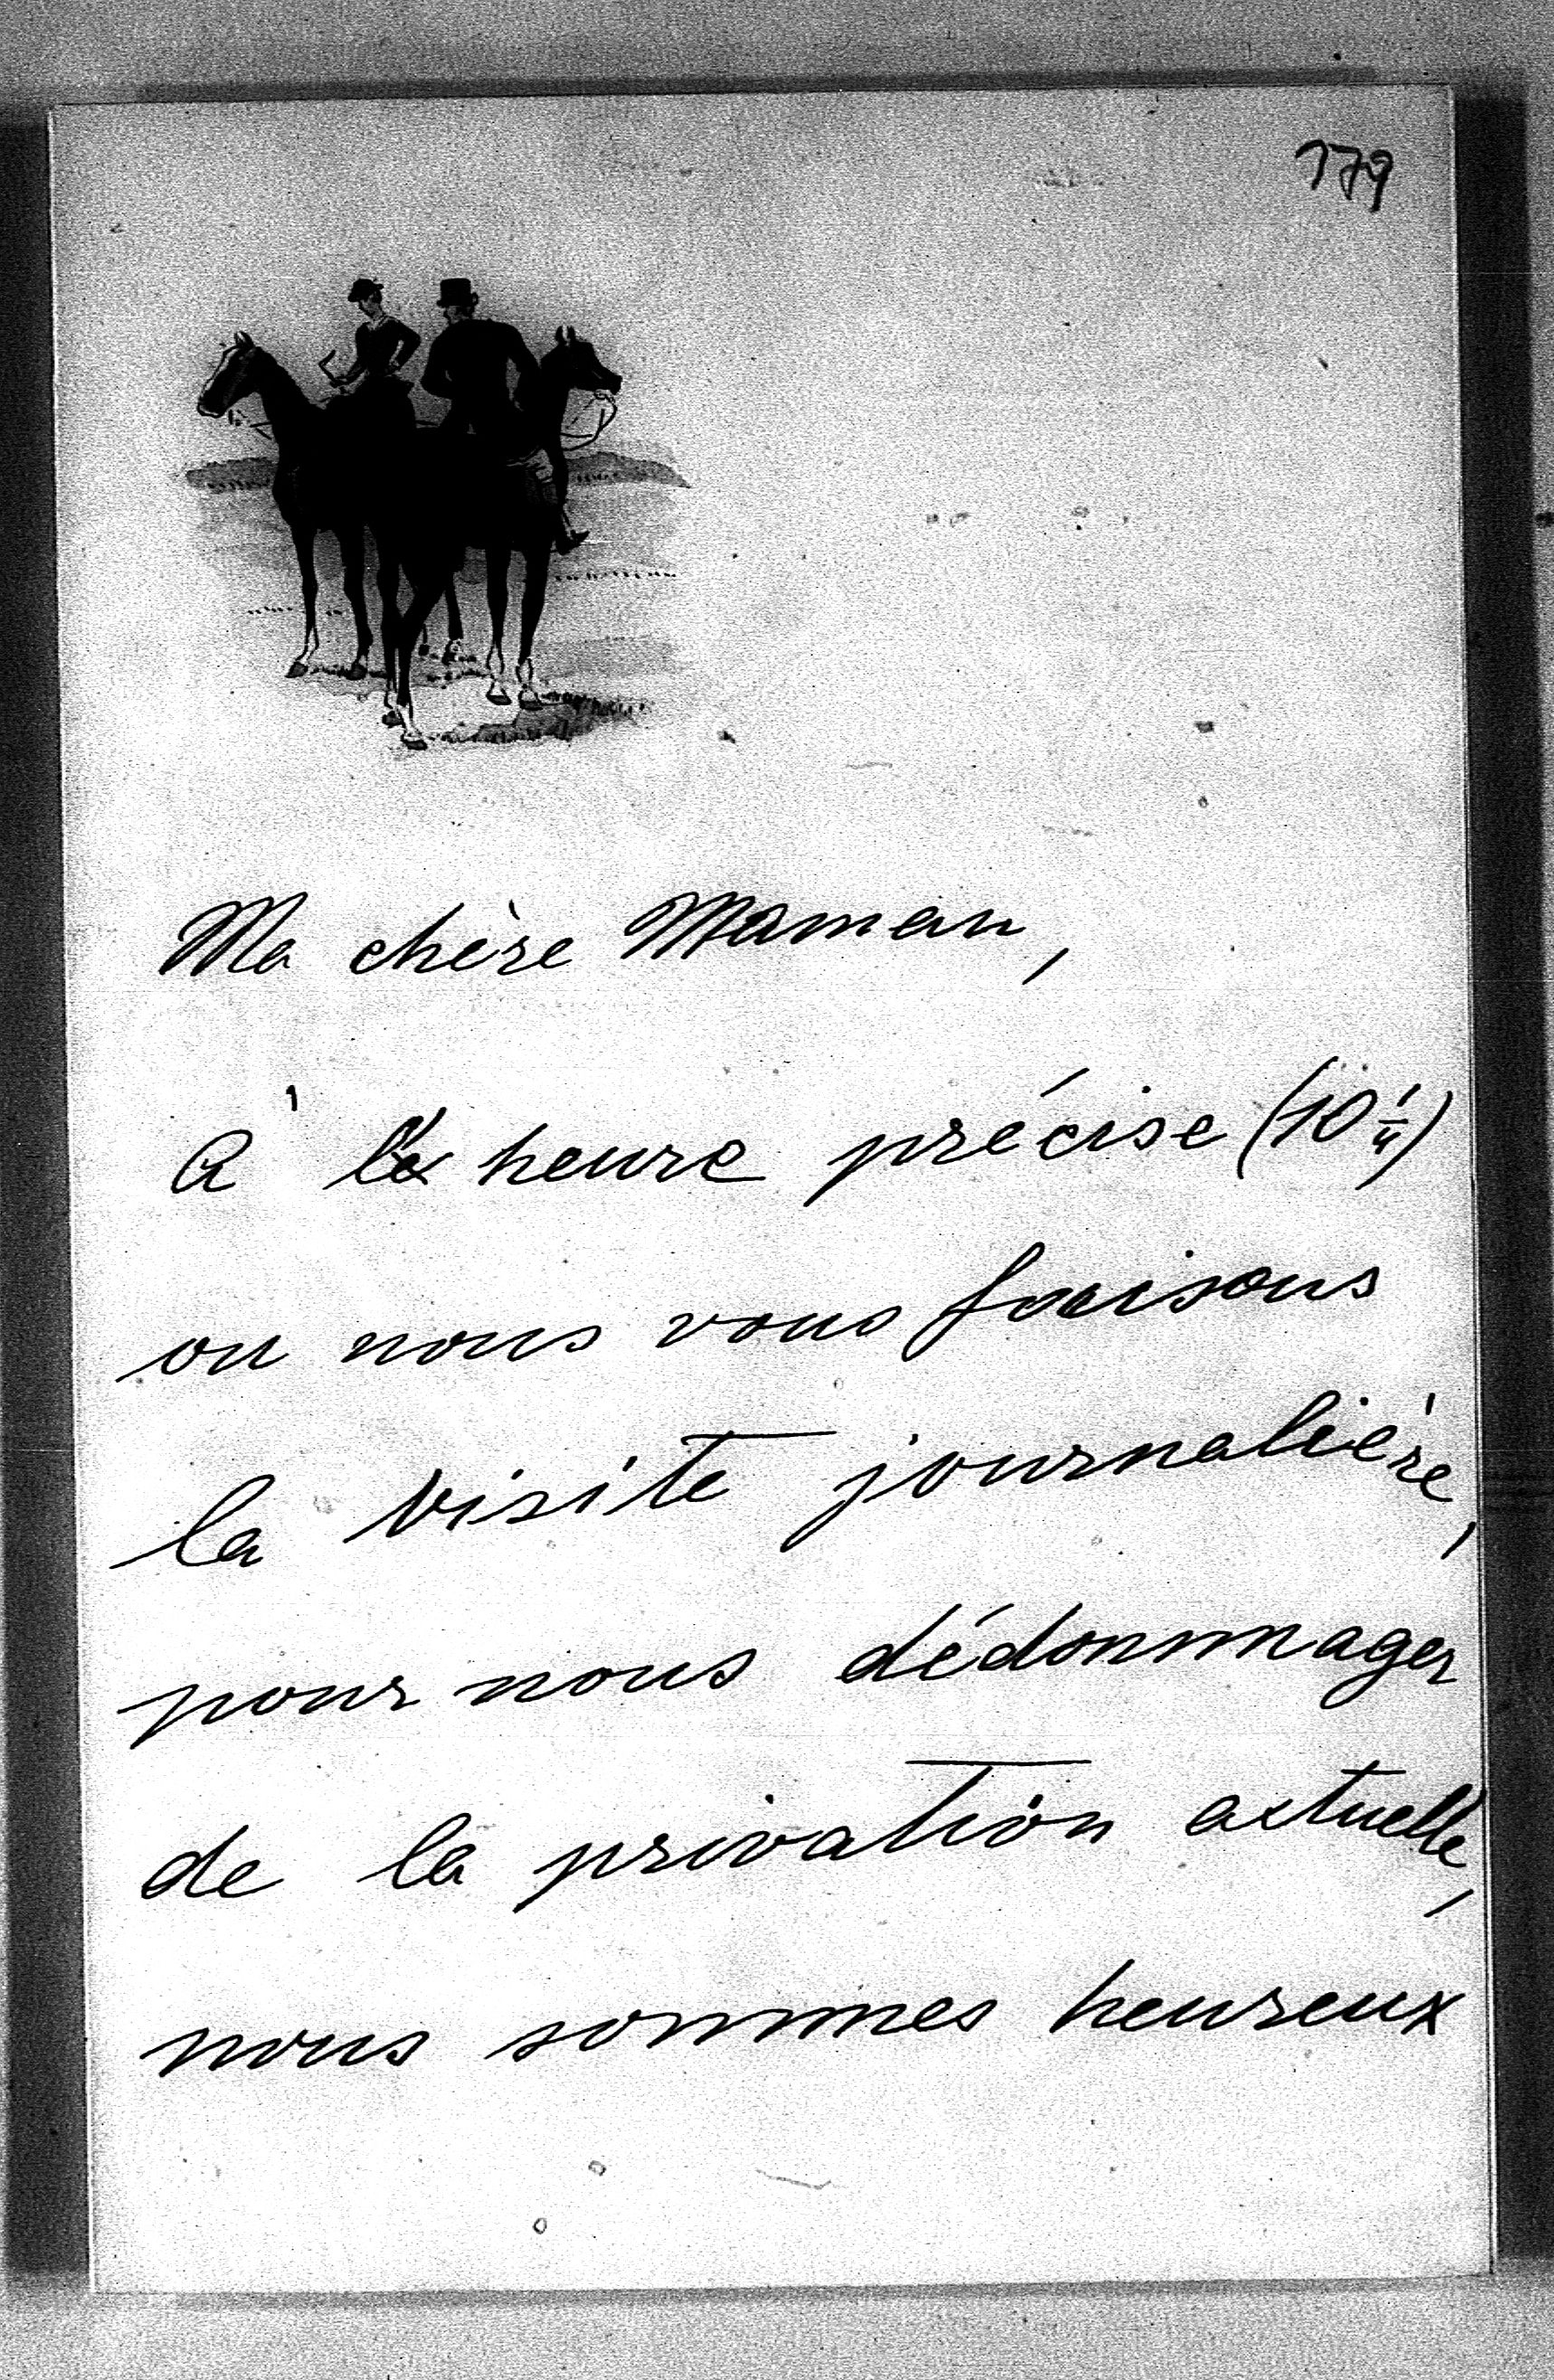 179
Ma chère Maman,
à l'heure précise (10 1/4)
ou nous vous faisons
la visite journalière,
pour nous dédommager
de la privation actuelle,
nous sommes heureux